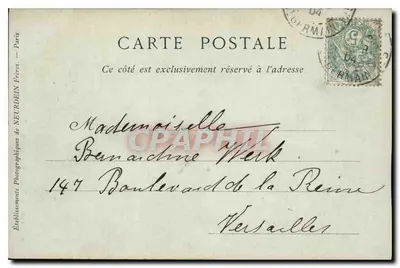 CARTE POSTALE
Ce côté est exclusivement réservé à l'adresse
Etablissements Photographiques de NEURDEIN Frères. — Paris
5
04
04
Mademoiselle
Bernardine Werk
147 Boulevard de la Reine
Versailles